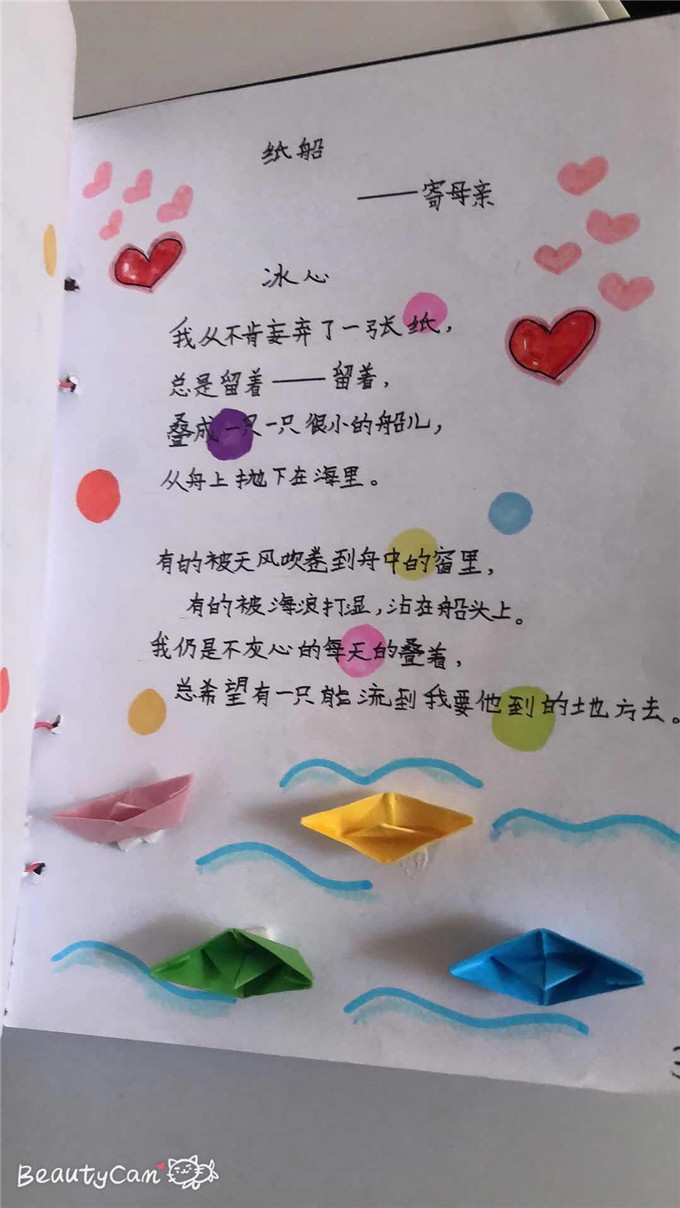 纸船
——寄母亲
冰心
我从不肯妄弃了一张纸，
总是留着——留着，
叠成一只一只很小的船儿，
从舟上抛下在海里。
有的被天风吹卷到舟中的窗里，
有的被海浪打湿，沾在船头上。
我仍是不灰心的每天的叠着，
总希望有一只能流到我要他到的地方去。
BeautyCam